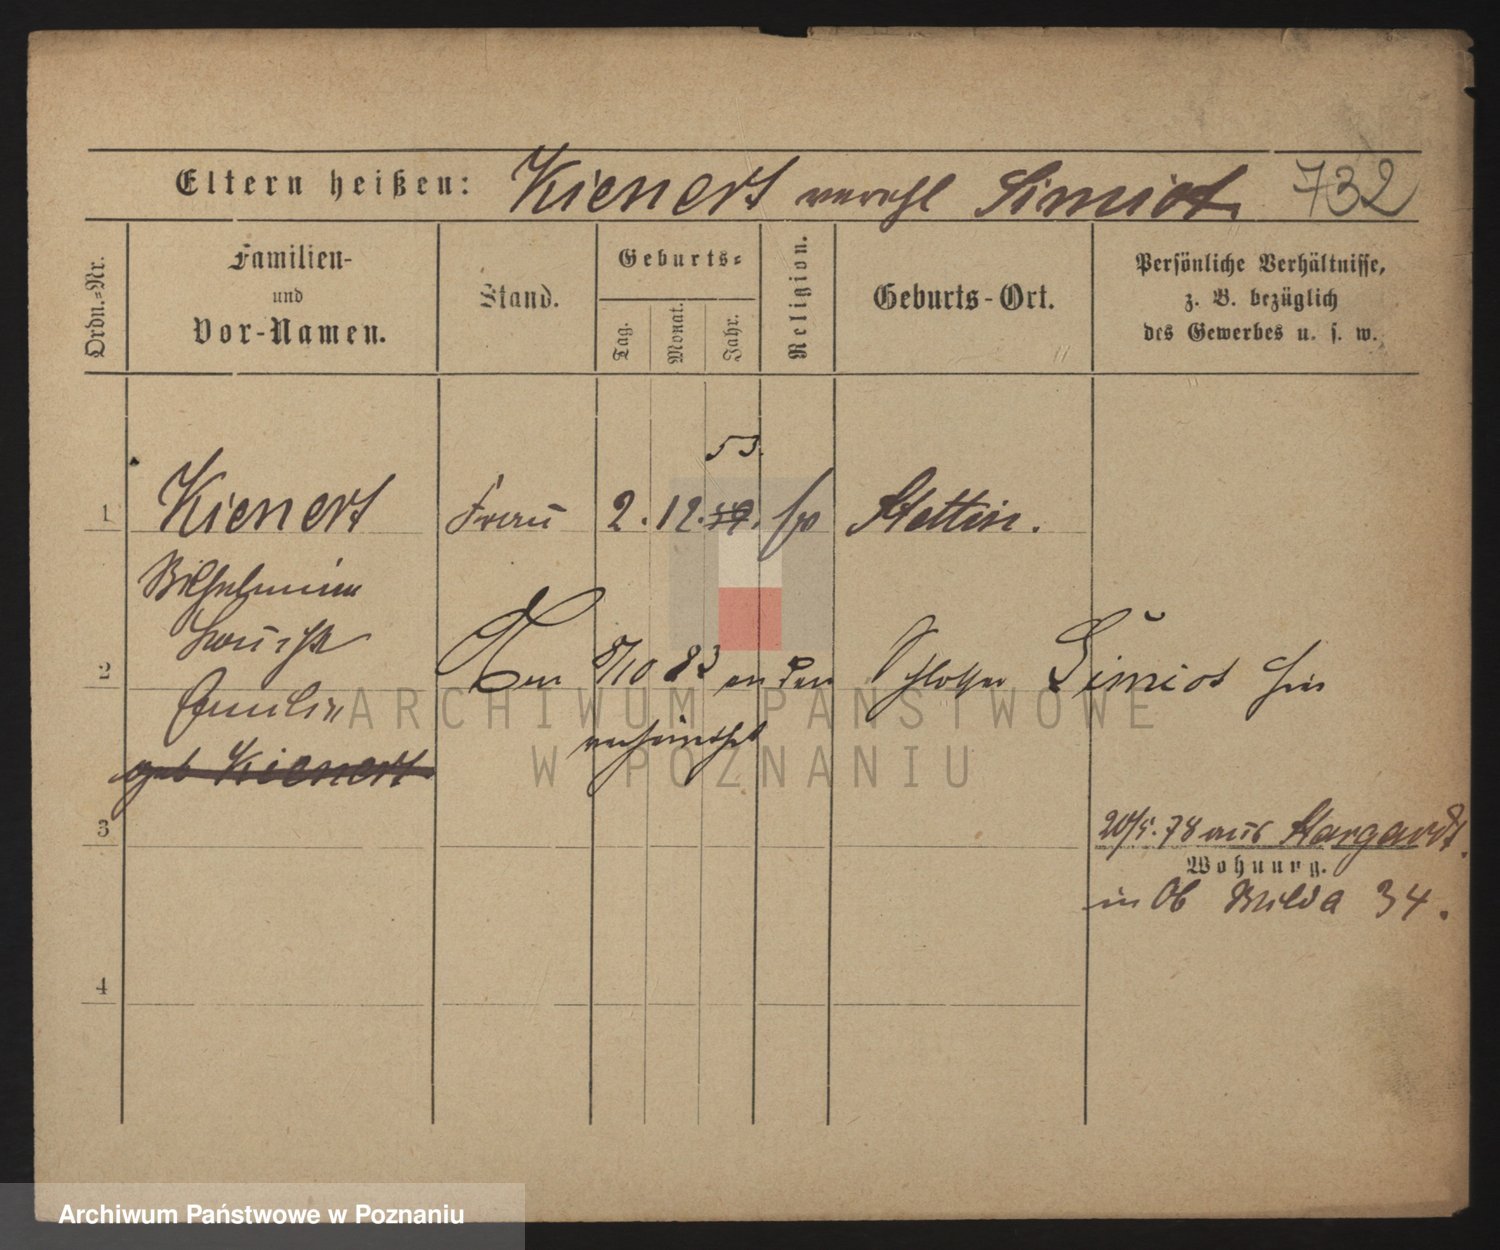 Eltern heißen: Kienert verehl Simiot. 732
Ordn.-Nr.
Familien-
und
Vor-Namen.
Stand.
Geburts-
Tag.
Monat.
Jahr.
Religion.
Geburts-Ort.
Persönliche Verhältnisse,
z. B. bezüglich
des Gewerbes u. s. w.
53.
1 Kienert Frau 2. 12. Stettin.
Wilhelmine
Louise
2
Emilie
8/10 83 an den Schlosser Simiot hier
verheirathet
geb Kienert
ARCHIWUM PAŃSTWOWE
W POZNANIU
3
20/5. 78 aus Stargardt.
Wohnung.
in Ob Wilda 34.
4
Archiwum Państwowe w Poznaniu